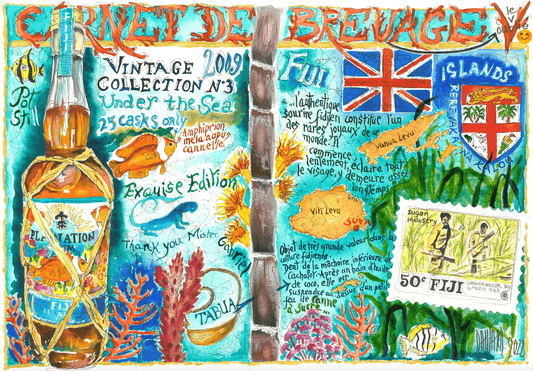 CARNET DE BREUVAGE V
le
Pol
Sti
VINTAGE 2009
COLLECTION N°3
Under the Sea
25 casks only
Amphiprion
melanopus
cannelle.
Exquise Edition
Thank you Mister
Gabriel
TABUA
PLANTATION
FIJI
FIJI
ISLANDS
REREVAKA NA KALOU
...l'authentique
sourire fidjien constitue l'un
des rares joyaux de ce
monde. Il
commence
lentement, éclaire tout
le visage, y demeure assez
longtemps
Vanua Levu
Viti Levu
SUVA
Objet de très grande valeur dans la
culture fidjienne.
Dent de la mâchoire inférieure de
Cachalot. Après un bain d'huile
de coco, elle est
suspendue au dessus d'un petit
feu de canne
à sucre...
Sugar
industry
50c FIJI
Commonwealth Day